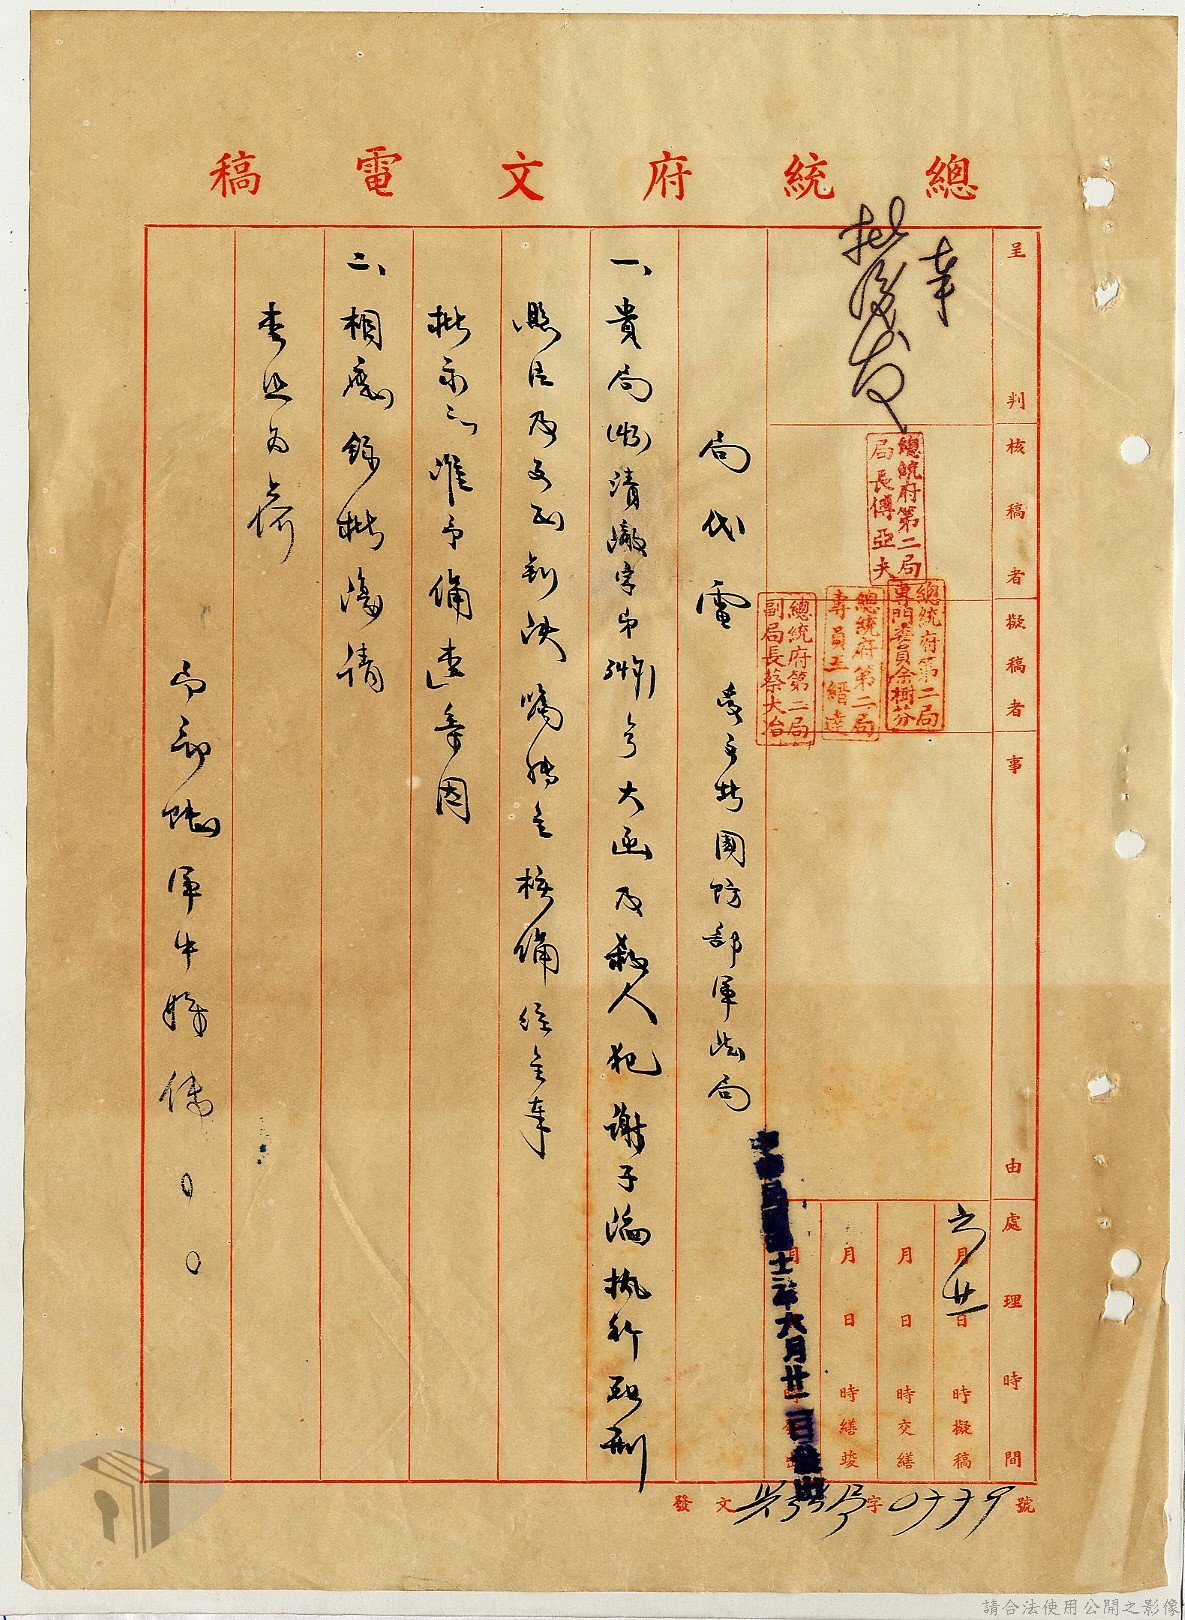 總統府文電稿
呈判
核稿者
擬稿者
事由
處理時間
奉
批後發
總統府第二局
局長傅亞夫
總統府第二局
專門委員余樹芬
總統府第二局
專員王縉達
總統府第二局
副局長蔡大冶
六月廿一日 時擬稿
月 日 時交繕
月 日 時繕竣
中華民國四十三年六月廿一日發出
局代電 國防部軍法局
一、貴局 清澈字第 號大函及殺人犯謝子論執行死刑
照片及 判決 轉呈核備 經呈奉
批示「准予備查」等因
二、相應錄批復請
查照為荷
發文 字0779號
請合法使用公開之影像